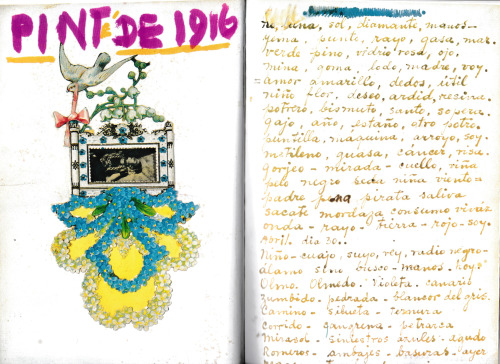 PINTÉ DE 1916
luna, sol, diamante, manos-
yema, punto, rayo, gasa, mar.
verde pino, vidrio rosa, ojo,
mina, goma, lodo, madre, voy.
=amor amarillo, dedos, útil
niño flor, deseo, ardid, resina.
potrero, bismuto, santo, sopera.
gajo, año, estaño, otro potro.
puntilla, máquina, arroyo, soy.
metileno, guasa, cáncer, risa.
Gorjeo - mirada - cuello, viña
pelo negro seda niña viento =
padre pena pirata saliva
sacate mordaza consumo vivaz
onda - rayo - tierra - rojo - soy.
Abril. día 30.
Niño - cuajo, suyo, rey, radio negro -
álamo sino busco - manos. hoy.
Olmo. Olmedo. Violeta. canario
zumbido. pedrada - blancor del gris.
Camino - silueta - ternura
corrido - gangrena - petrarca
mirasol - siniestros azules. agudo
Romeros - ambajes - basuras - ayer